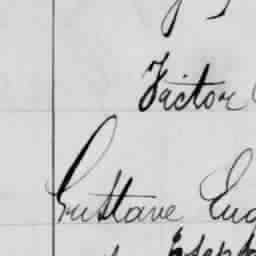 Victor
Gustave Eug